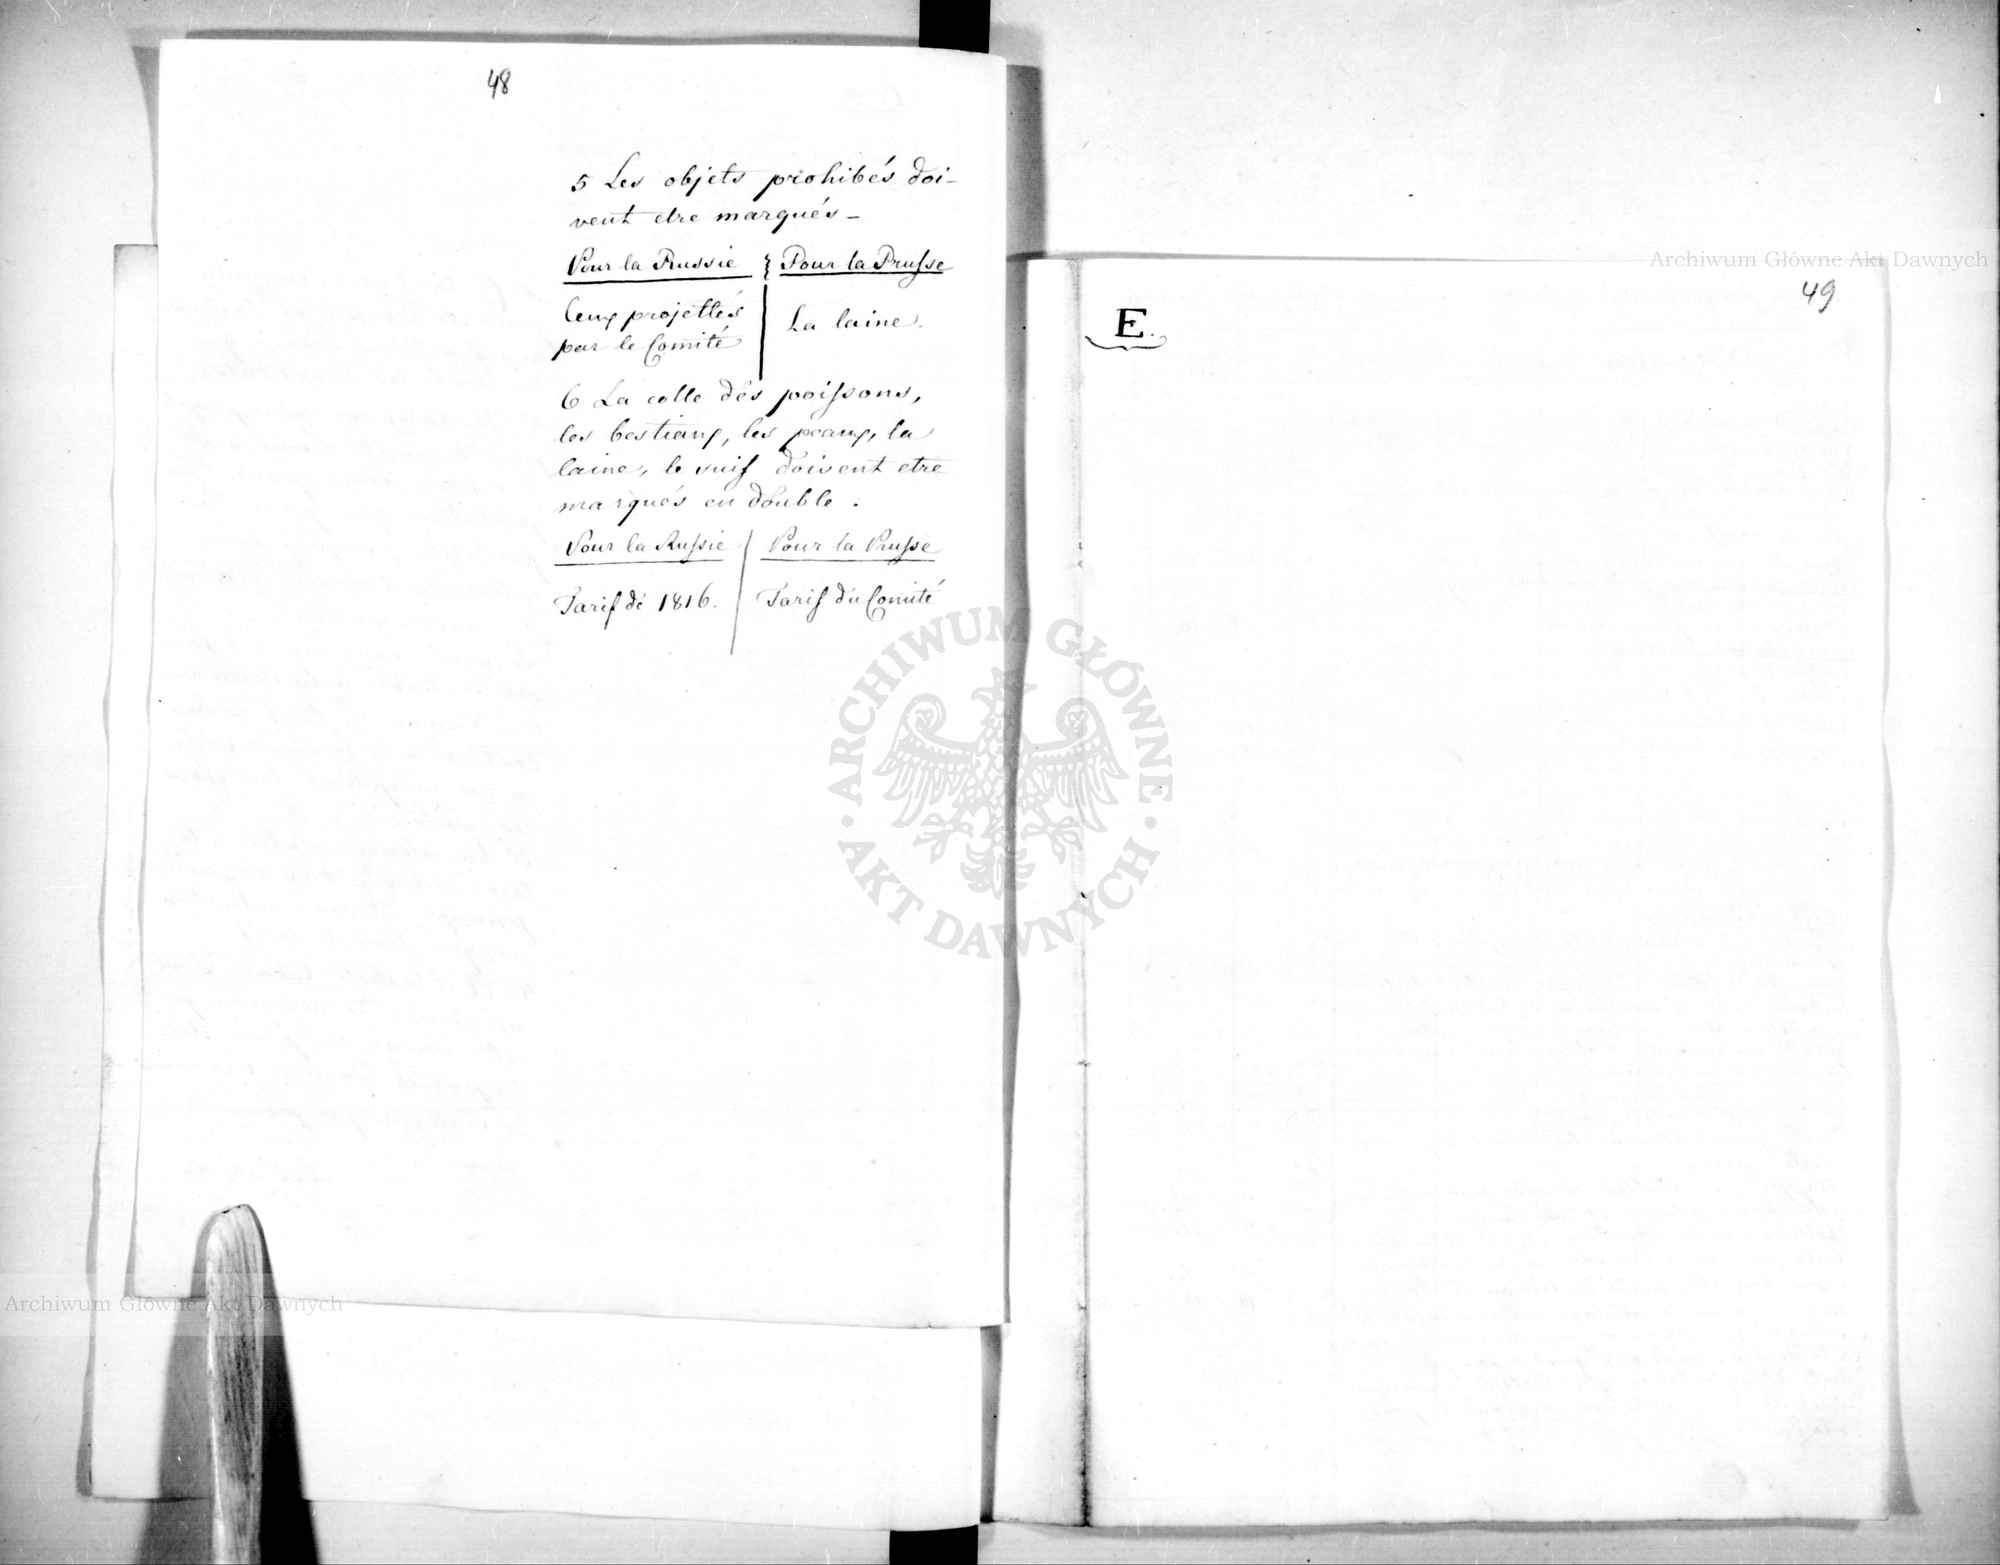 48
5 Les objets prohibés doi-
vent etre marqués -
Pour la Russie } Pour la Prusse
Ceux projettés
par le Comité
La laine.
6 La colle des poissons,
les bestiaux, les peaux, la
laine, le suif doivent etre
marqués en double.
Pour la Russie Pour la Prusse
Tarif de 1816. Tarif du Comité
49
E.
Archiwum Główne Akt Dawnych
ARCHIWUM GŁÓWNE
AKT DAWNYCH
Archiwum Główne Akt Dawnych